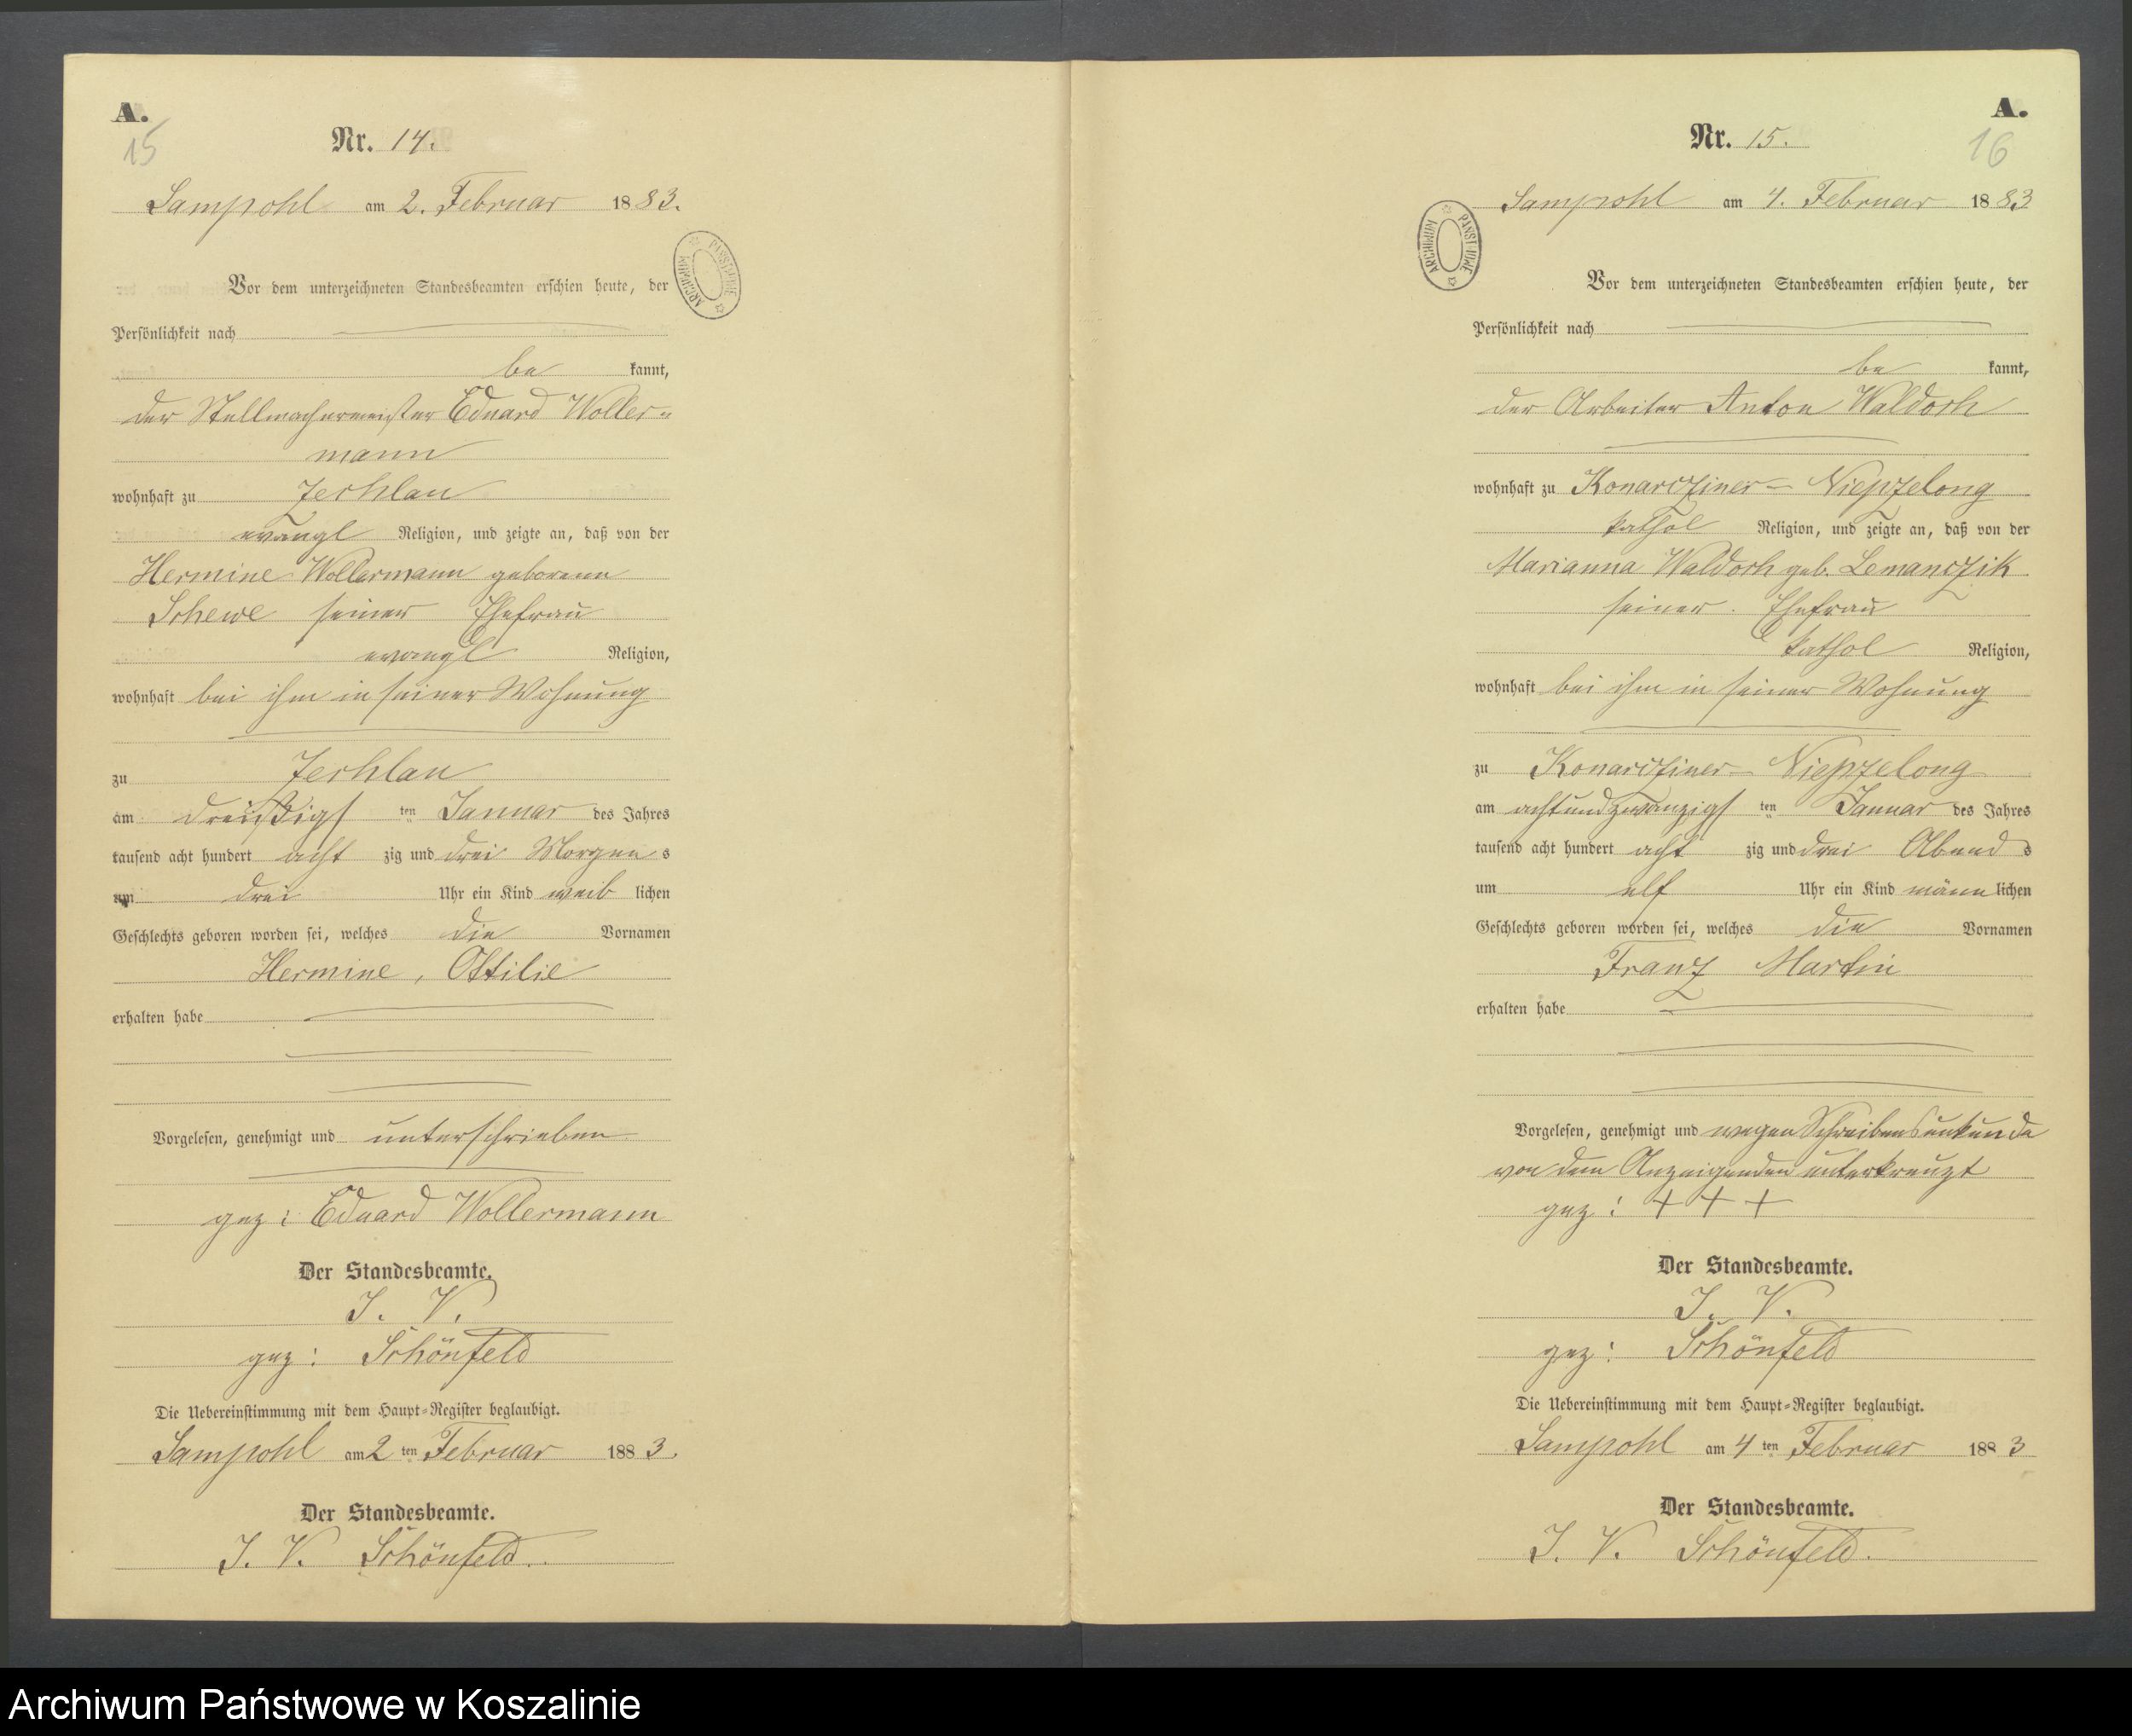 A.
15
Nr. 14.
Sampohl am 2. Februar 1883.
ARCHIWUM PAŃSTWOWE
Vor dem unterzeichneten Standesbeamten erschien heute, der
Persönlichkeit nach
be kannt,
der Stellmachermeister Eduard Woller-
mann
wohnhaft zu Zechlau
evangl Religion, und zeigte an, daß von der
Hermine Wollermann geborenen
Schewe seiner Ehefrau
evangl Religion,
wohnhaft bei ihm in seiner Wohnung
zu Zechlau
am dreißigs ten Januar des Jahres
tausend acht hundert acht zig und drei Morgen s
um drei Uhr ein Kind weib lichen
Geschlechts geboren worden sei, welches die Vornamen
Hermine, Ottilie
erhalten habe
Vorgelesen, genehmigt und unterschrieben
gez: Eduard Wollermann
Der Standesbeamte.
I. V.
gez: Schönfeld
Die Uebereinstimmung mit dem Haupt-Register beglaubigt.
Sampohl am 2 ten Februar 1883.
Der Standesbeamte.
I. V. Schönfeld.
A.
16
Nr. 15.
Sampohl am 4. Februar 1883
ARCHIWUM PAŃSTWOWE
Vor dem unterzeichneten Standesbeamten erschien heute, der
Persönlichkeit nach
be kannt,
der Arbeiter Anton Waldoch
wohnhaft zu Konarcziner- Niepzelong
kathol Religion, und zeigte an, daß von der
Marianna Waldoch geb. Lemanczik
seiner Ehefrau
kathol Religion,
wohnhaft bei ihm in seiner Wohnung
zu Konarcziner- Niepzelong
am achtundzwanzigs ten Januar des Jahres
tausend acht hundert acht zig und drei Abend s
um elf Uhr ein Kind männ lichen
Geschlechts geboren worden sei, welches die Vornamen
Franz Martin
erhalten habe
Vorgelesen, genehmigt und wegen Schreibensunkunde
von dem Anzeigenden unterkreuzt
gez: + + +
Der Standesbeamte.
I. V.
gez: Schönfeld
Die Uebereinstimmung mit dem Haupt-Register beglaubigt.
Sampohl am 4 ten Februar 1883
Der Standesbeamte.
I. V. Schönfeld.
Archiwum Państwowe w Koszalinie